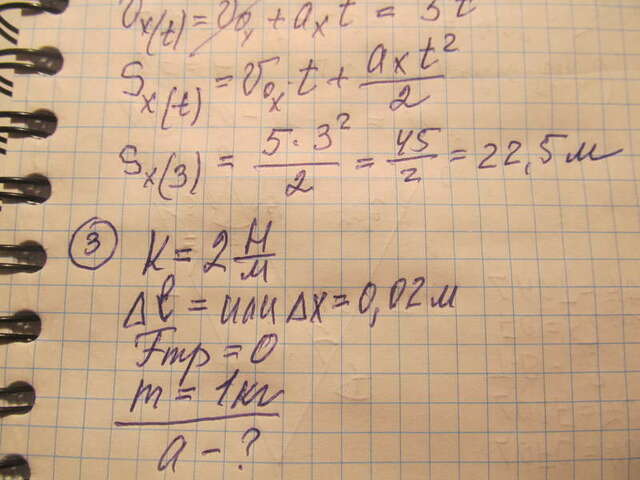 Vx(t) = V0x + axt = 5t
Sx(t) = V0x · t + axt²/2
Sx(3) = 5 · 3²/2 = 45/2 = 22,5 м
③ K = 2 Н/м
Δℓ = или Δx = 0,02 м
Fтр = 0
m = 1 кг
a - ?